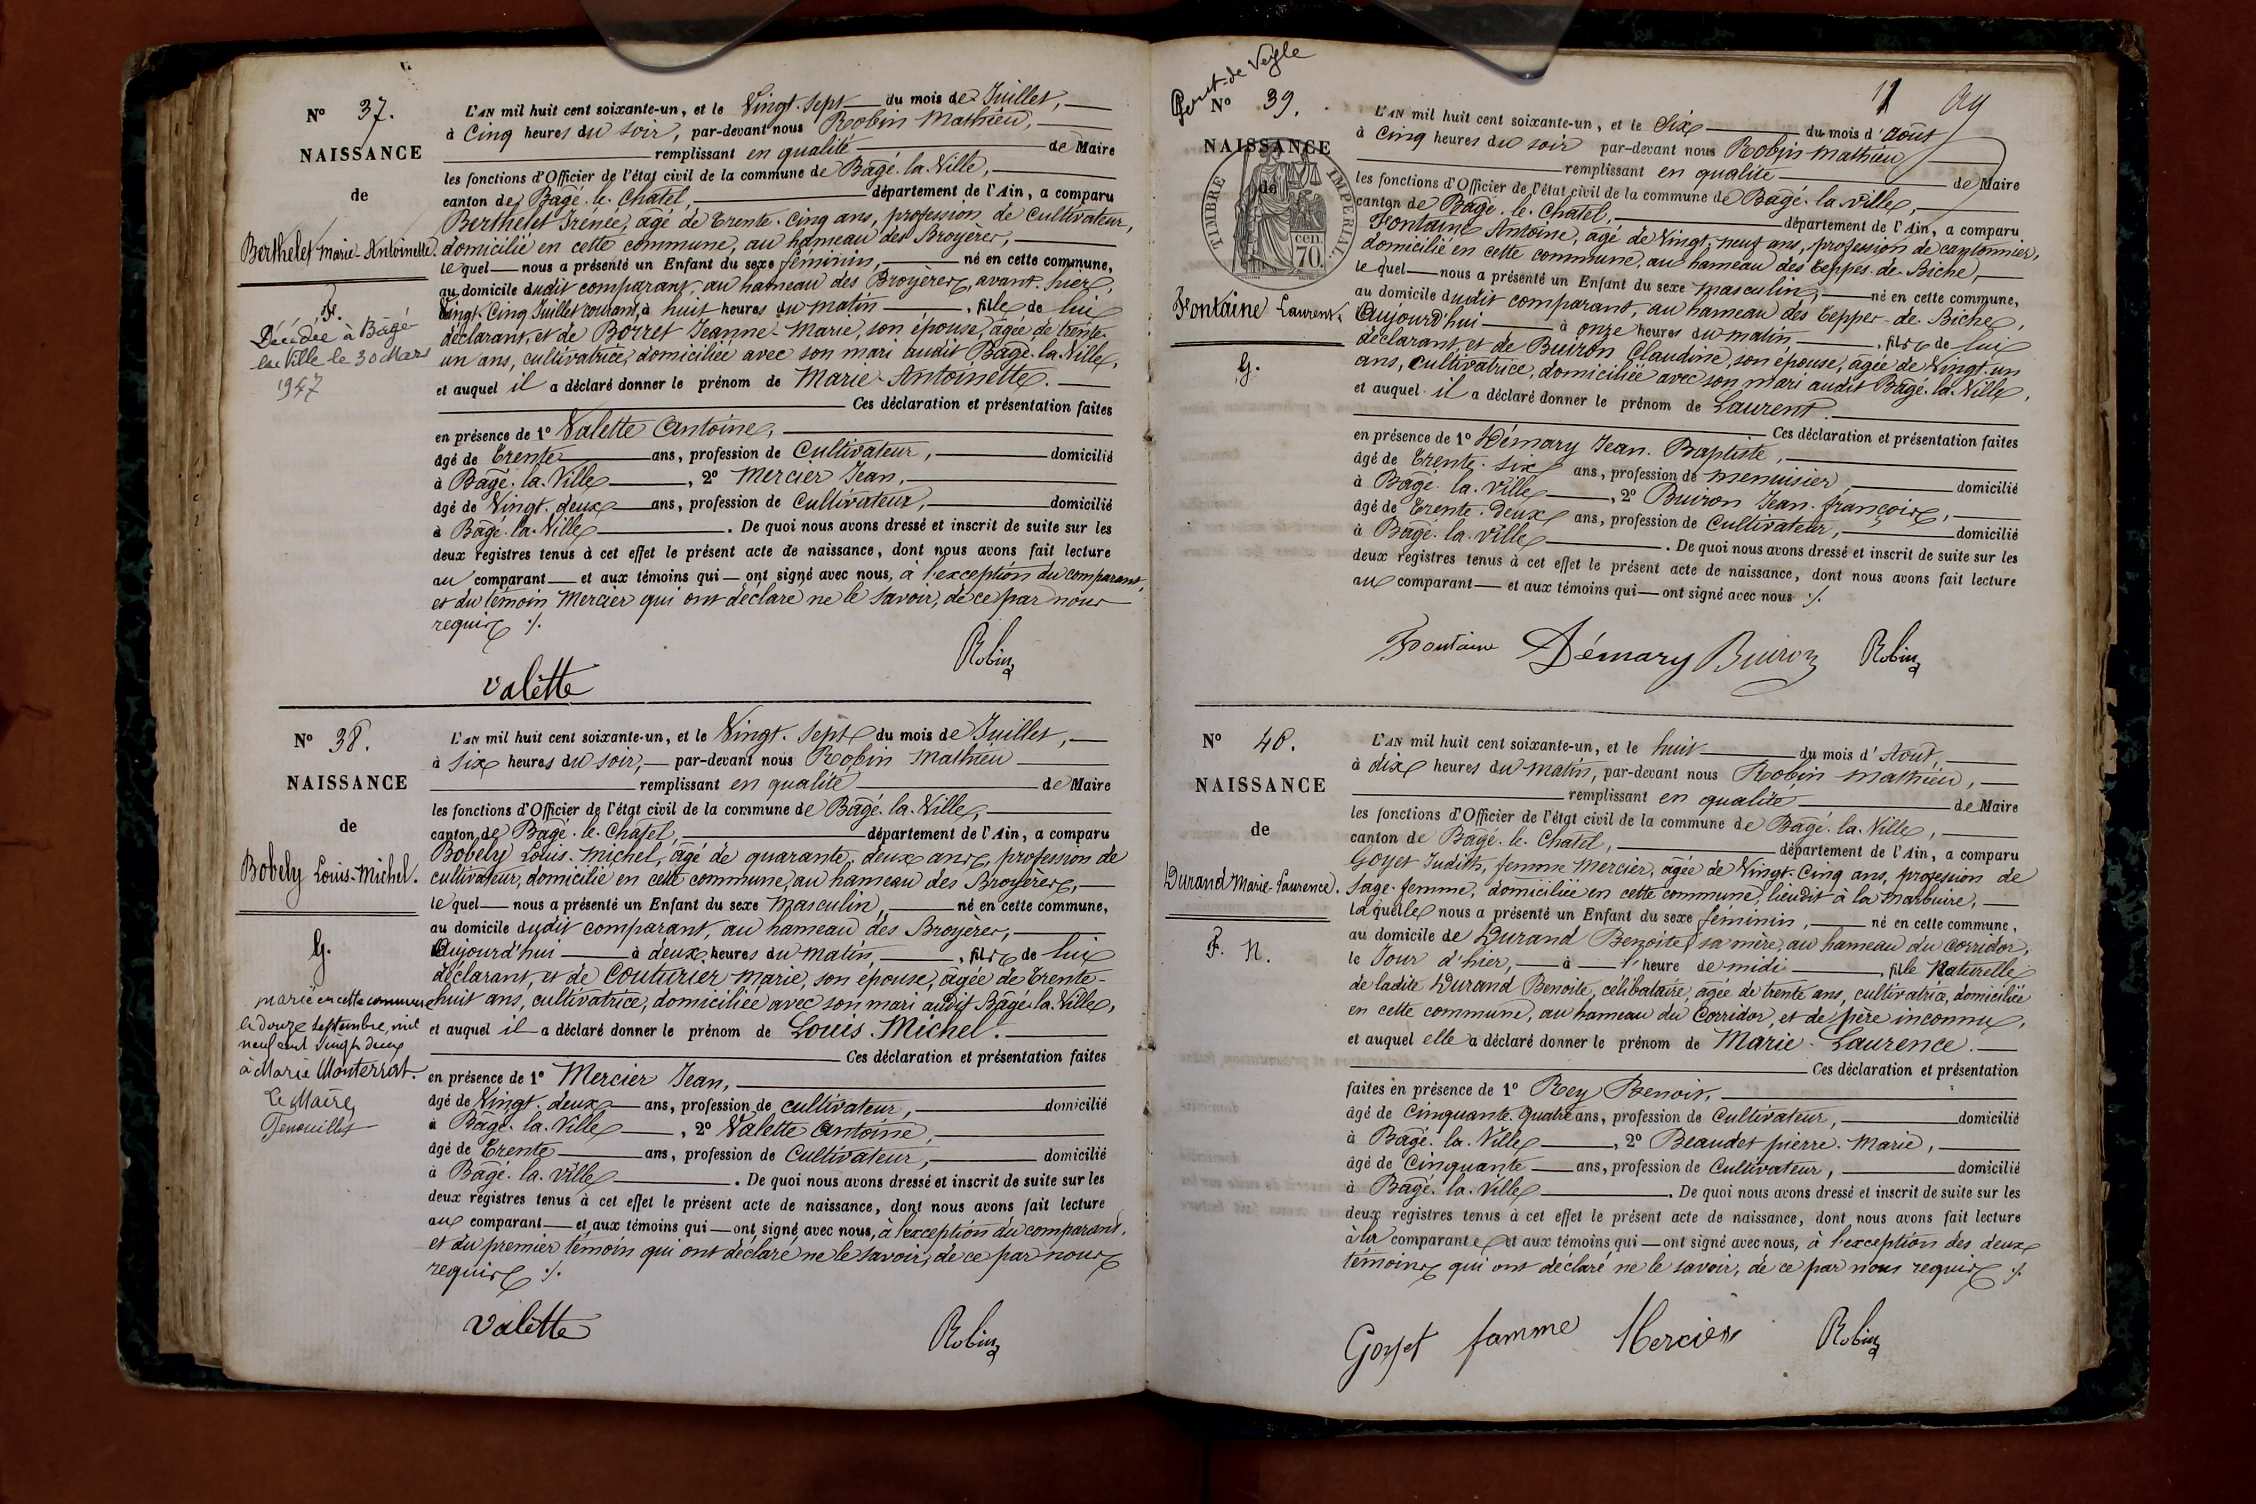 N° 37.
NAISSANCE
de
Berthelet Marie-Antoinette.
F.
Décédée à Bâgé
la Ville le 30 Mars
1947
L'AN mil huit cent soixante-un, et le Vingt-Sept du mois de Juillet,
à Cinq heures du soir, par-devant nous Robin Mathieu,
remplissant en qualité de Maire
les fonctions d'Officier de l'état civil de la commune de Bâgé-la-Ville,
canton de Bâgé-le-Chatel, département de l'Ain, a comparu
Berthelet Irénée, âgé de trente-cinq ans, profession de cultivateur,
domicilié en cette commune, au hameau des Broyères,
lequel nous a présenté un Enfant du sexe féminin, né en cette commune,
au domicile dudit comparant, au hameau des Broyères, avant-hier
Vingt-Cinq Juillet courant, à huit heures du matin, fille de lui
déclarant, et de Borret Jeanne-Marie, son épouse, âgée de trente-
un ans, cultivatrice, domiciliée avec son mari audit Bâgé-la-Ville,
et auquel il a déclaré donner le prénom de Marie-Antoinette.
Ces déclaration et présentation faites
en présence de 1° Valette Antoine,
âgé de Trente ans, profession de Cultivateur, domicilié
à Bâgé-la-Ville, 2° Mercier Jean,
âgé de Vingt-deux ans, profession de Cultivateur, domicilié
à Bâgé-la-Ville. De quoi nous avons dressé et inscrit de suite sur les
deux registres tenus à cet effet le présent acte de naissance, dont nous avons fait lecture
au comparant et aux témoins qui ont signé avec nous, à l'exception du comparant,
et du témoin Mercier qui ont déclaré ne le savoir, de ce par nous
requis ./.
Valette Robin
N° 38.
NAISSANCE
de
Bobely Louis-Michel.
G.
marié en cette commune
le douze septembre mil
neuf cent vingt deux
à Marie Monterrat.
Le Maire,
L'AN mil huit cent soixante-un, et le Vingt-Sept du mois de Juillet,
à Six heures du soir, par-devant nous Robin Mathieu
remplissant en qualité de Maire
les fonctions d'Officier de l'état civil de la commune de Bâgé-la-Ville,
canton de Bâgé-le-Chatel, département de l'Ain, a comparu
Bobely Louis-Michel, âgé de quarante-deux ans, profession de
cultivateur, domicilié en cette commune, au hameau des Broyères,
lequel nous a présenté un Enfant du sexe Masculin, né en cette commune,
au domicile dudit comparant, au hameau des Broyères,
Aujourd'hui à deux heures du matin, fils de lui
déclarant, et de Couturier Marie, son épouse, âgée de trente-
huit ans, cultivatrice, domiciliée avec son mari audit Bâgé-la-Ville,
et auquel il a déclaré donner le prénom de Louis-Michel.
Ces déclaration et présentation faites
en présence de 1° Mercier Jean,
âgé de Vingt-deux ans, profession de cultivateur, domicilié
à Bâgé-la-Ville, 2° Valette Antoine,
âgé de Trente ans, profession de Cultivateur, domicilié
à Bâgé-la-Ville. De quoi nous avons dressé et inscrit de suite sur les
deux registres tenus à cet effet le présent acte de naissance, dont nous avons fait lecture
au comparant et aux témoins qui ont signé avec nous, à l'exception du comparant,
et du premier témoin qui ont déclaré ne le savoir, de ce par nous
requis ./.
Valette Robin
Pont-de-Veyle
11
N° 39.
NAISSANCE
de
TIMBRE IMPERIAL
70 cen
Fontaine Laurent.
G.
L'AN mil huit cent soixante-un, et le Six du mois d'Août
à Cinq heures du soir par-devant nous Robin Mathieu
remplissant en qualité de Maire
les fonctions d'Officier de l'état civil de la commune de Bâgé-la-Ville,
canton de Bâgé-le-Chatel, département de l'Ain, a comparu
Fontaine Antoine, âgé de Vingt-neuf ans, profession de cantonnier,
domicilié en cette commune, au hameau des Teppes-de-Biche,
lequel nous a présenté un Enfant du sexe masculin, né en cette commune,
au domicile dudit comparant, au hameau des Teppes-de-Biche,
Aujourd'hui à onze heures du matin, fils de lui
déclarant, et de Buiron Claudine, son épouse, âgée de Vingt-un
ans, cultivatrice, domiciliée avec son mari audit Bâgé-la-Ville,
et auquel il a déclaré donner le prénom de Laurent.
Ces déclaration et présentation faites
en présence de 1° Démary Jean-Baptiste,
âgé de Trente-six ans, profession de menuisier domicilié
à Bâgé-la-Ville, 2° Buiron Jean-françois,
âgé de Trente-deux ans, profession de Cultivateur, domicilié
à Bâgé-la-Ville. De quoi nous avons dressé et inscrit de suite sur les
deux registres tenus à cet effet le présent acte de naissance, dont nous avons fait lecture
au comparant et aux témoins qui ont signé avec nous ./.
Fontaine Démary Buiron Robin
N° 40.
NAISSANCE
de
Durand Marie-Laurence.
F. N.
L'AN mil huit cent soixante-un, et le huit du mois d'Août,
à dix heures du matin, par-devant nous Robin Mathieu,
remplissant en qualité de Maire
les fonctions d'Officier de l'état civil de la commune de Bâgé-la-Ville,
canton de Bâgé-le-Chatel, département de l'Ain, a comparu
Goyet Judith, femme Mercier, âgée de Vingt-Cinq ans, profession de
Sage-femme, domiciliée en cette commune, lieudit à la Marbuire,
laquelle nous a présenté un Enfant du sexe féminin, né en cette commune,
au domicile de Durand Benoite sa mère, au hameau du Corridor,
le Jour d'hier, à l'heure de midi, fille Naturelle
de ladite Durand Benoite, célibataire, âgée de trente ans, cultivatrice, domiciliée
en cette commune, au hameau du Corridor, et de père inconnu,
et auquel elle a déclaré donner le prénom de Marie-Laurence.
Ces déclaration et présentation
faites en présence de 1° Rey Benoit,
âgé de Cinquante-quatre ans, profession de Cultivateur, domicilié
à Bâgé-la-Ville, 2° Beaudet pierre-Marie,
âgé de Cinquante ans, profession de Cultivateur, domicilié
à Bâgé-la-Ville. De quoi nous avons dressé et inscrit de suite sur les
deux registres tenus à cet effet le présent acte de naissance, dont nous avons fait lecture
à la comparante et aux témoins qui ont signé avec nous, à l'exception des deux
témoins qui ont déclaré ne le savoir, de ce par nous requis ./.
Goyet famme Mercier Robin